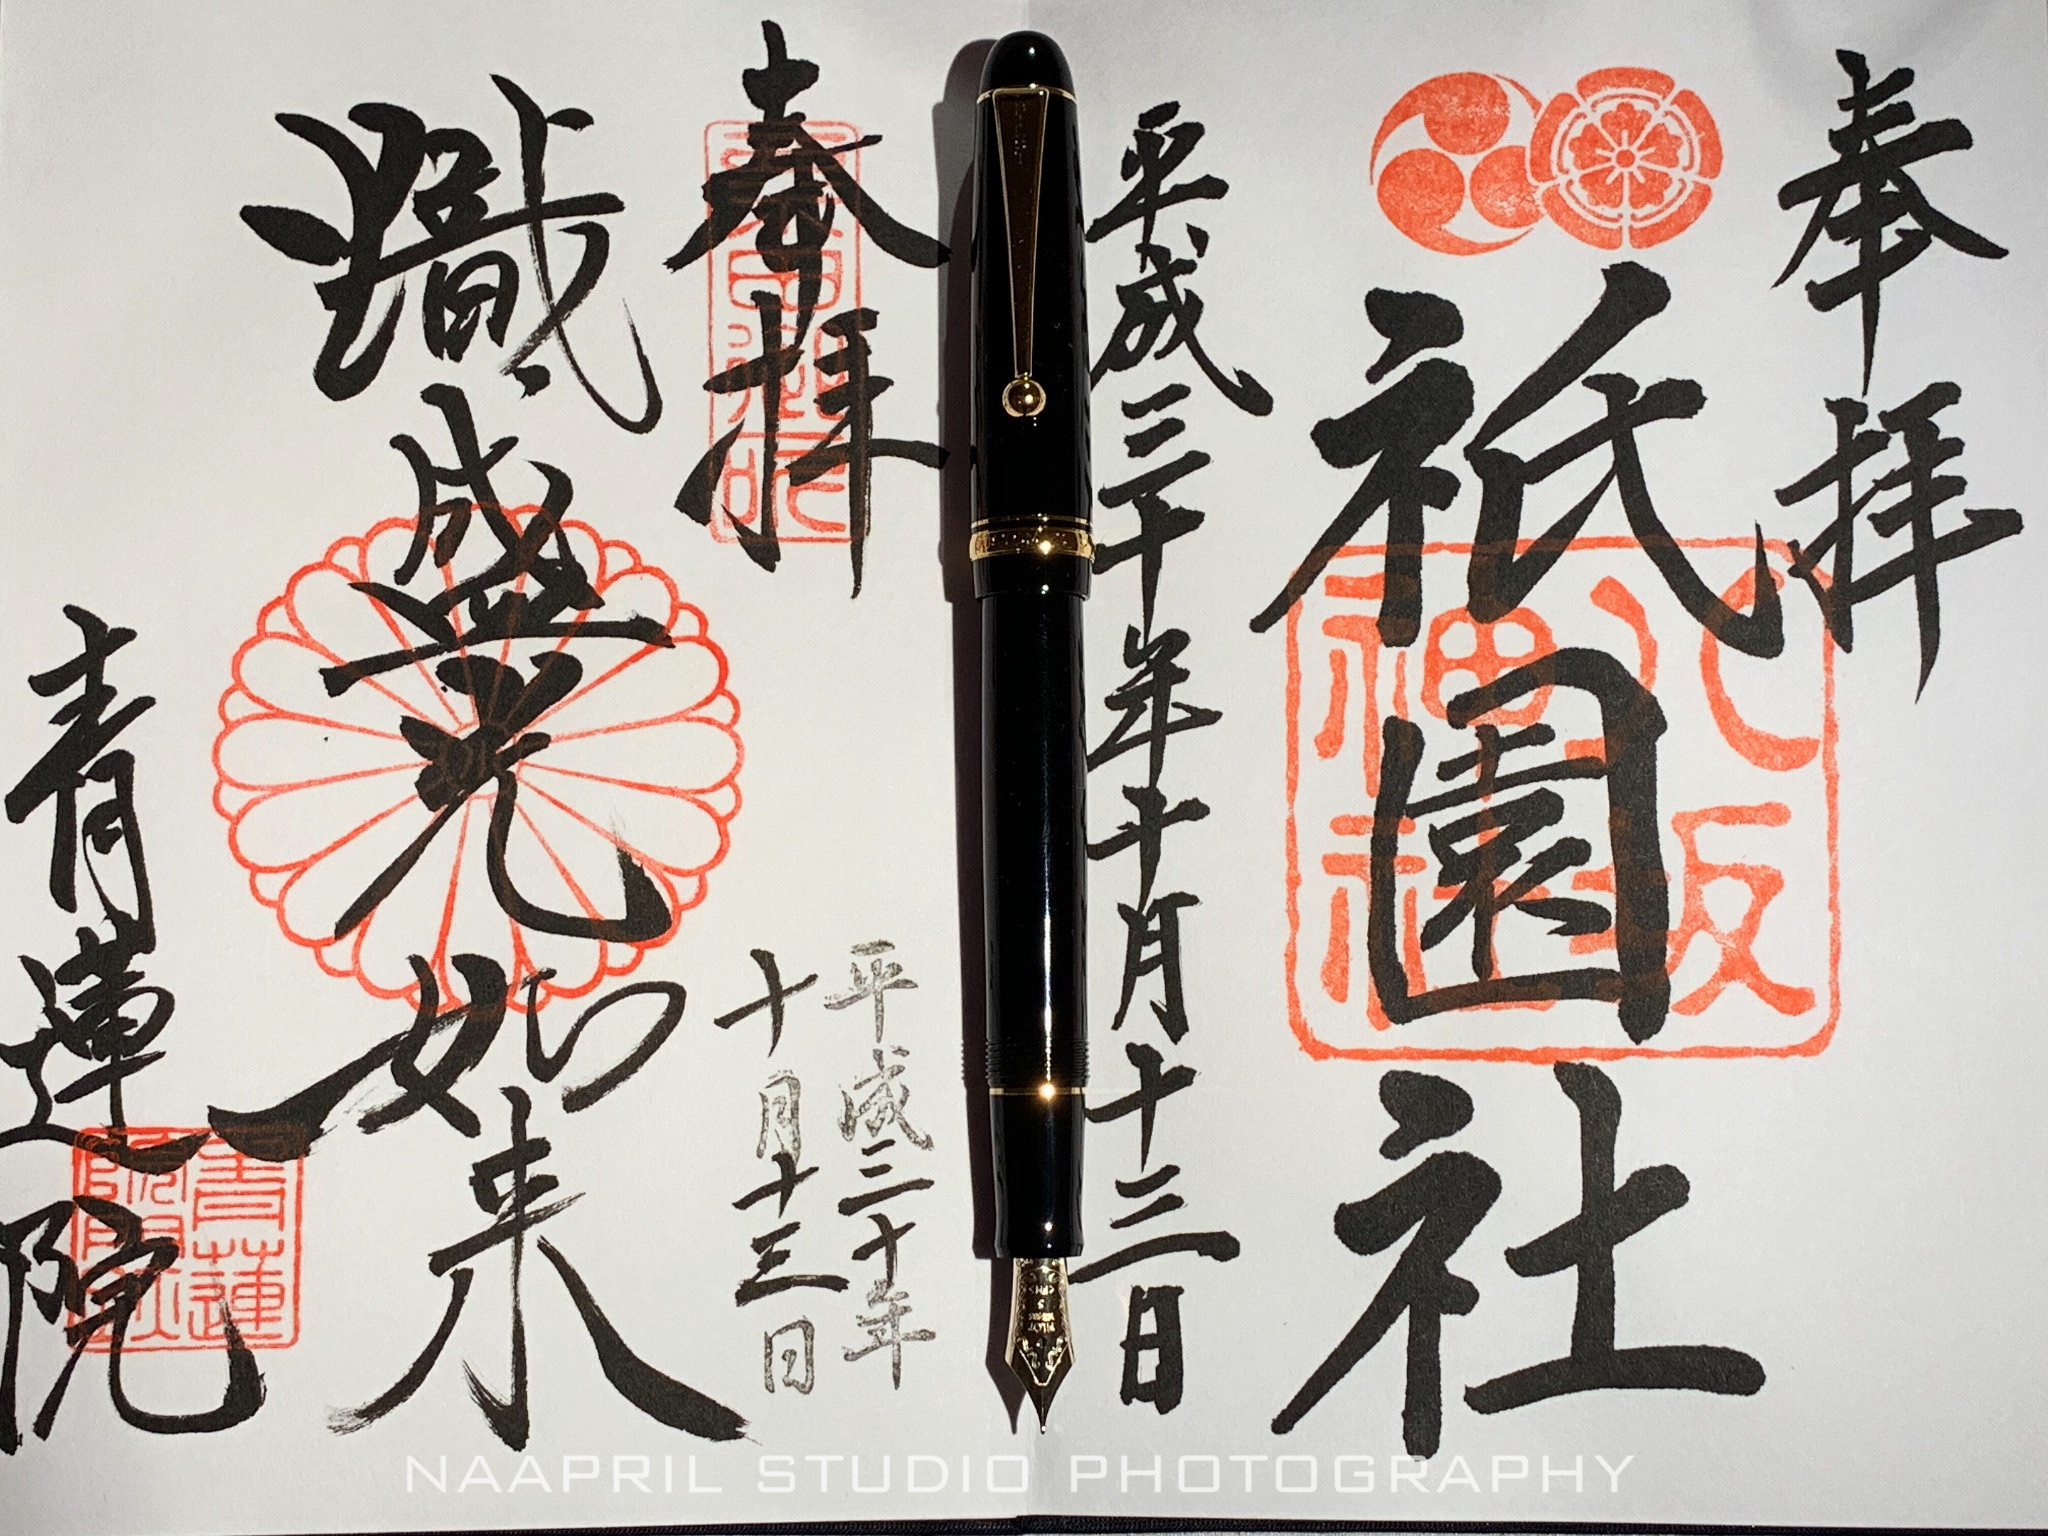 奉拝
祇園社
八坂
神社
平成三十年十月十三日
奉拝
平成三十年
十月十三日
熾盛光如来
青蓮院
青蓮
PILOT
NAAPRIL STUDIO PHOTOGRAPHY